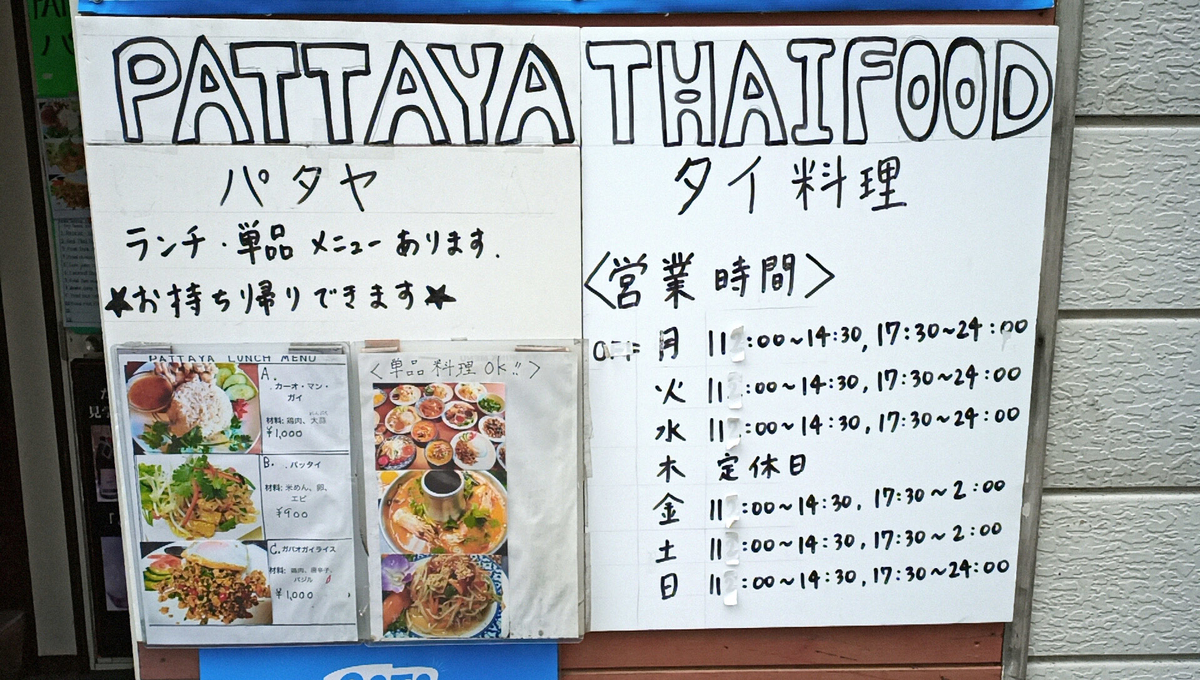 PATTAYA THAIFOOD
パタヤ
ランチ・単品 メニューあります.
★お持ち帰りできます★
PATTAYA LUNCH MENU
A.
カーオ・マン・
ガイ
材料: 鶏肉、大豆
¥1,000
B.
パッタイ
材料: 米めん、卵、
エビ
¥900
C. ガパオガイライス
材料: 鶏肉、唐辛子、
バジル
¥1,000
<単品料理OK!!>
タイ料理
<営業時間>
月 11:00~14:30, 17:30~24:00
火 11:00~14:30, 17:30~24:00
水 11:00~14:30, 17:30~24:00
木 定休日
金 11:00~14:30, 17:30~2:00
土 11:00~14:30, 17:30~2:00
日 11:00~14:30, 17:30~24:00